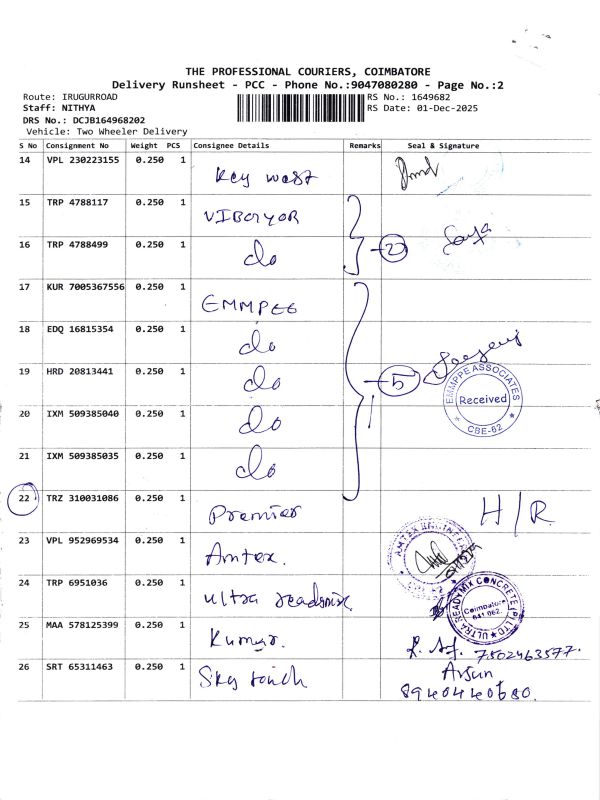 THE PROFESSIONAL COURIERS, COIMBATORE
Delivery Runsheet - PCC - Phone No.:9047080280 - Page No.:2
Route: IRUGURROAD
RS No.: 1649682
Staff: NITHYA
RS Date: 01-Dec-2025
DRS No.: DCJB164968202
Vehicle: Two Wheeler Delivery
S No Consignment No Weight PCS Consignee Details Remarks Seal & Signature
14 VPL 230223155 0.250 1 Key west
15 TRP 4788117 0.250 1 VIBGYOR
16 TRP 4788499 0.250 1 do 2
17 KUR 7005367556 0.250 1 EMMPEE
18 EDQ 16815354 0.250 1 do
19 HRD 20813441 0.250 1 do 5
EMMPPE ASSOCIATES
Received
CBE-62
20 IXM 509385040 0.250 1 do
21 IXM 509385035 0.250 1 do
22 TRZ 310031086 0.250 1 Premier H/R
23 VPL 952969534 0.250 1 Amtex.
24 TRP 6951036 0.250 1 ultra readymix
ULTRA READYMIX CONCRETE (P) LTD
Coimbatore
641 062.
25 MAA 578125399 0.250 1 Kumar. 7502463577.
26 SRT 65311463 0.250 1 Sky touch Arjun
8940440680.